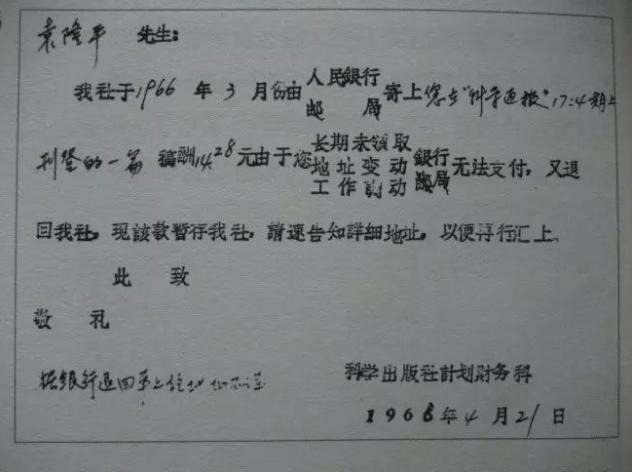 袁隆平 先生:
我社于1966年3月份由人民银行邮局寄上您在"科学通报"17:4期上
刊登的一篇稿酬14.28元由于您长期未领取地址变动工作调动银行邮局无法支付,又退
回我社,现該款暫存我社,請速告知詳細地址,以便再行汇上。
此致
敬礼
科学出版社計划財务科
1966年4月21日